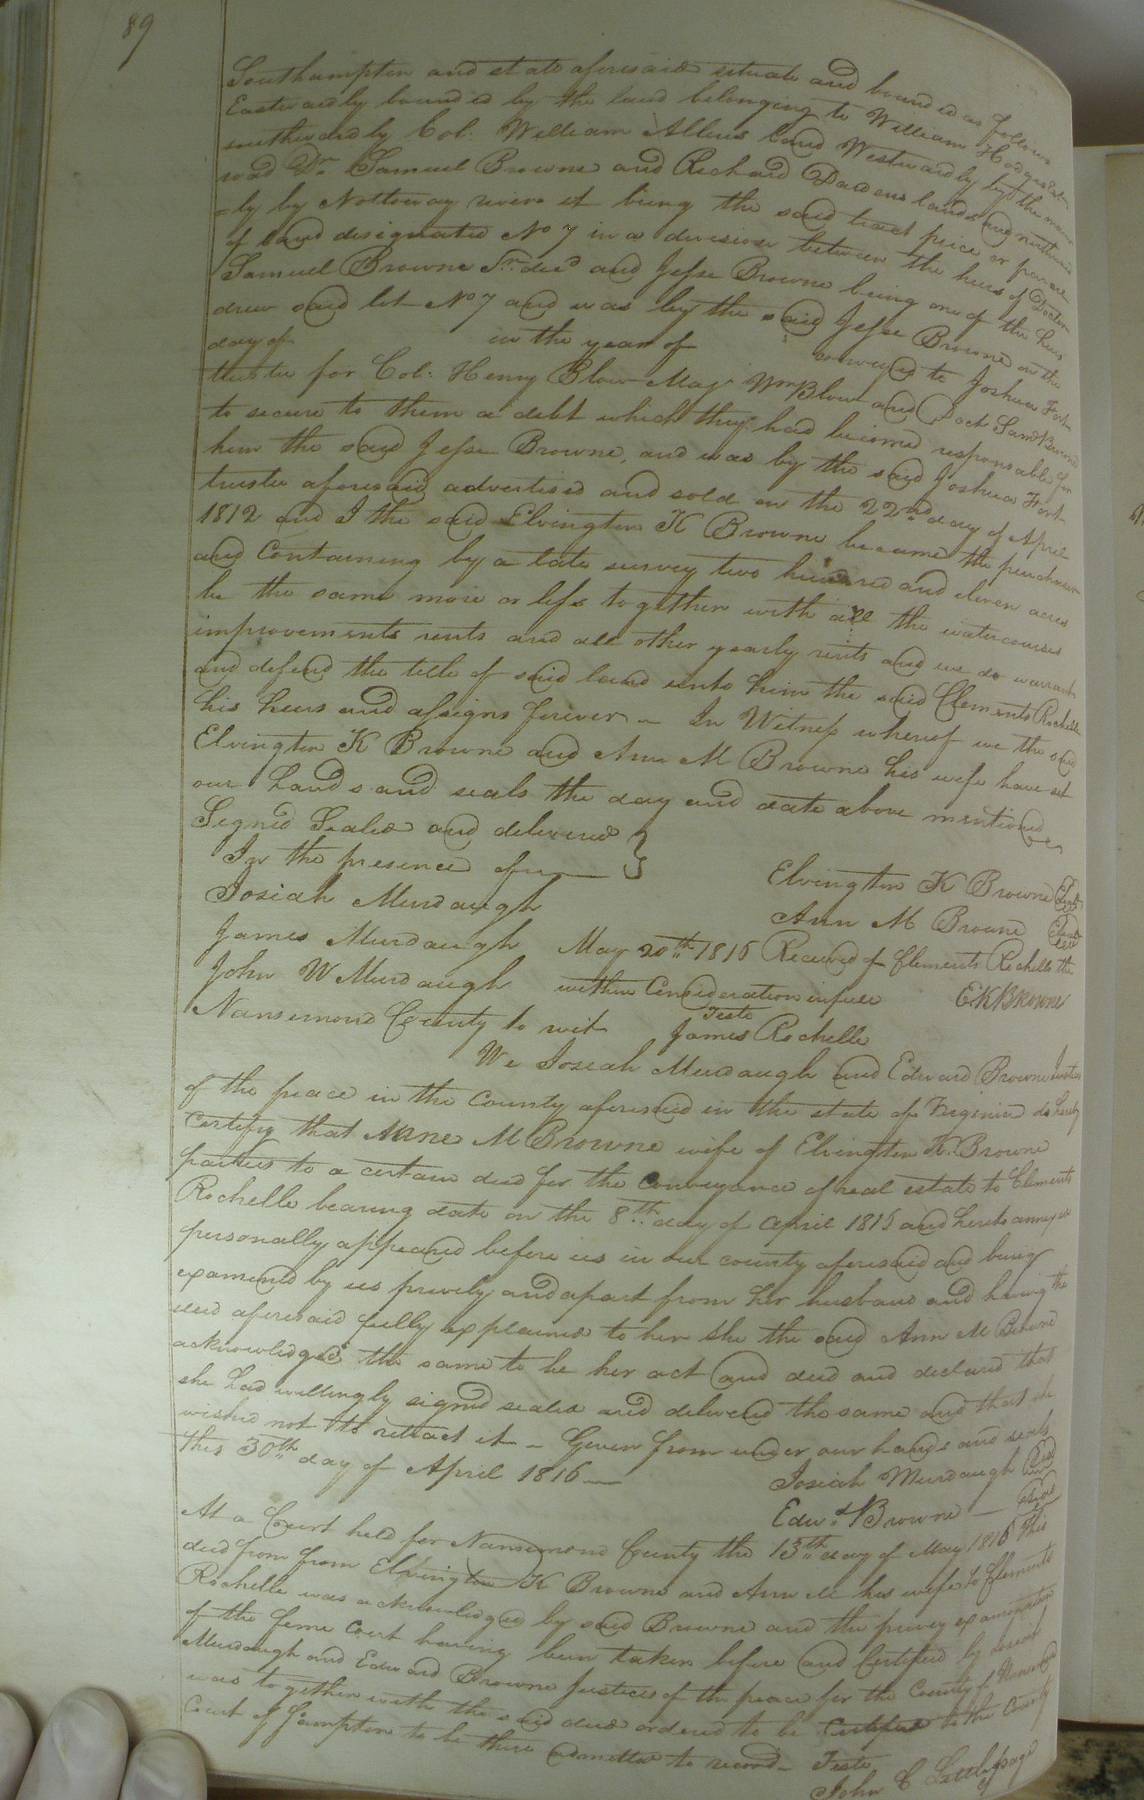 89
Southampton and state aforesaid situate and bounded as follows
Eastwardly bounded by the land belonging to William Hodges
southwardly Col. William Allens land Westwardly by the
road Dr Samuel Browne and Richard Dawens lands and northward
=ly by Nottoway river it being the said tract peice or parcel
of land designated No 7 in a division between the heirs of Doctor
Samuel Browne Sr. decd and Jesse Browne being one of the heirs
drew said lot No 7 and was by the said Jesse Browne on the
day of in the year of conveyed to Joshua Fort
trustee for Col. Henry Blow Majr Wm Blow and Doct Saml Browne
to secure to them a debt which they had become responsable for
him the said Jesse Browne, and was by the said Joshua Fort
trustee aforesaid advertised and sold on the 22nd day of April
1812 and I the said Elvington K Browne became the purchaser
and Containing by a late survey two hundred and eleven acres
be the same more or less together with all the watercourses
improvements rents and all other yearly rents and we do warrant
and defend the title of said land unto him the said Clements Rochelle
his heirs and assigns forever – In Witness whereof we the said
Elvington K Browne and Ann M Browne his wife have set
our hands and seals the day and date above mentioned
Signed Sealed and delivered }
In the presence of
Elvington K Browne Seal
Josiah Murdaugh
Ann M Browne Seal
James Murdaugh May 20th 1816 Received of Clements Rochelle the
John W Murdaugh within Consideration in full EKBrowne
Teste
Nansemond County to wit James Rochelle
We Josiah Murdaugh and Edward Browne Justices
of the peace in the County aforesaid in the state of Virginia do hereby
Certify that Anne M Browne wife of Elvington K. Browne
parties to a certain deed for the Conveyance of real estate to Clements
Rochelle bearing date on the 8th day of april 1815 and hereto annexed
personally appeared before us in our county aforesaid and being
examened by us privily and apart from her husband and having the
deed aforesaid fully explained to her she the said Ann M Browne
acknowledged the same to be her act and deed and declared that
she had willingly signed sealed and delivered the same and that she
wished not to retract it – Given from under our hands and seals
this 30th day of April 1816 —
Josiah Murdaugh Seal
Edwd Browne – Seal
At a Court held for Nansemond County the 13th day of May 1816 This
deed from from Elvington K Browne and Ann M his wife to Clements
Rochelle was acknowledged by said Browne and the privey examination
of the feme Covert having been taken before and Certified by Josiah
Murdaugh and Edward Browne Justices of the peace for the County of Nansemond
was together with the said deed ordered to be Certified to the County
Court of Sampton to be there admitted to record – Teste
John C Littlepage